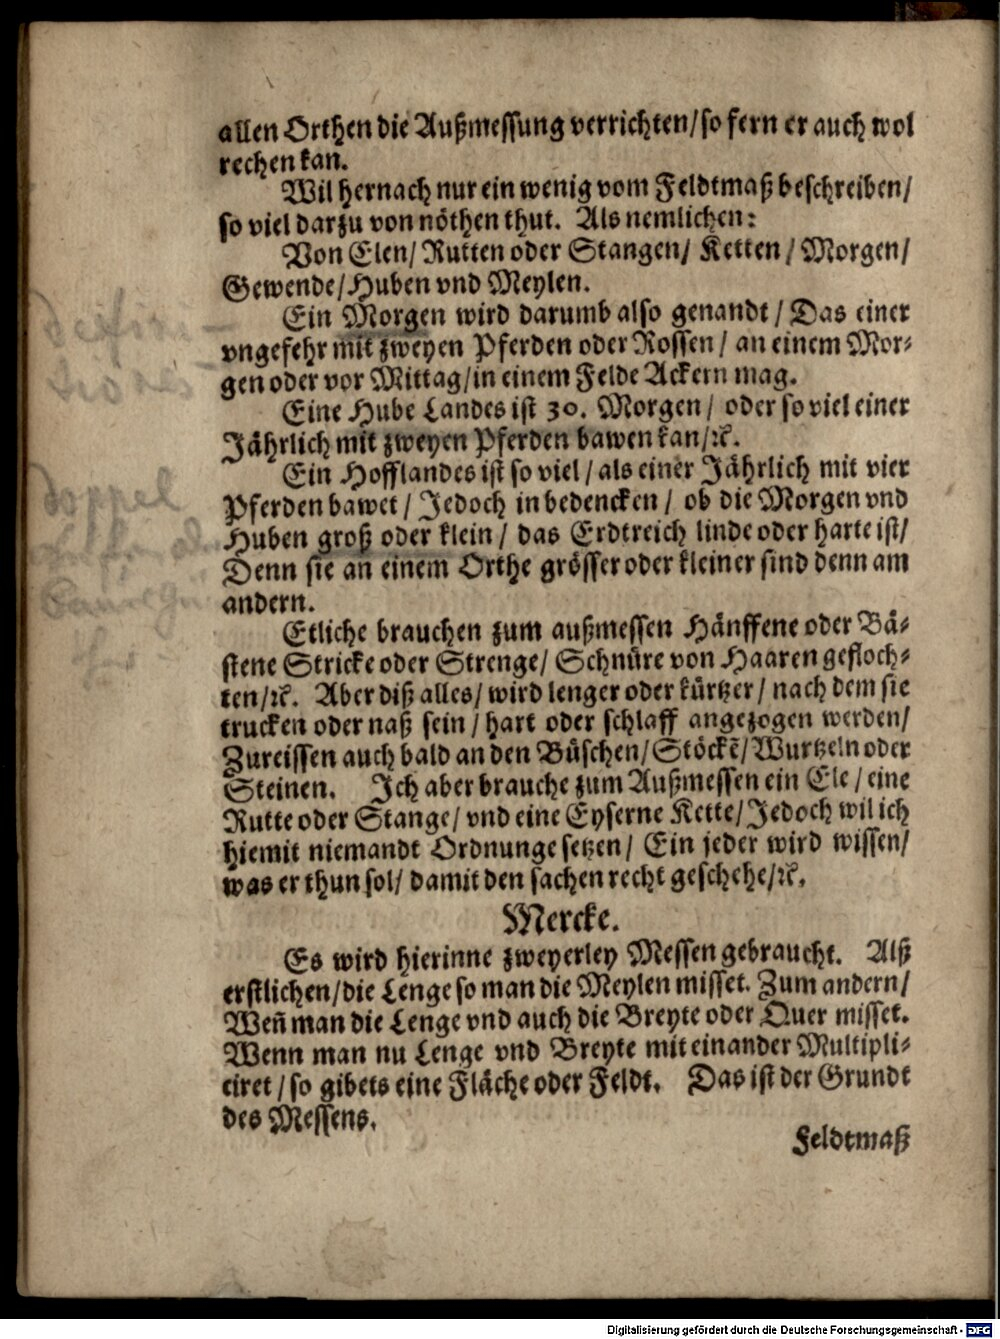 allen Orthen die Außmessung verrichten/ so fern er auch wol
rechen kan.
Wil hernach nur ein wenig vom Feldtmaß beschreiben/
so viel darzu von nöthen thut. Als nemlichen:
Von Elen/ Rutten oder Stangen/ Ketten/ Morgen/
Gewende/ Huben vnd Meylen.
Ein Morgen wird darumb also genandt/ Das einer
vngefehr mit zweyen Pferden oder Rossen/ an einem Mor-
gen oder vor Mittag/ in einem Felde Ackern mag.
Eine Hube Landes ist 30. Morgen/ oder so viel einer
Jährlich mit zweyen Pferden bawen kan/ꝛc.
Ein Hofflandes ist so viel/ als einer Jährlich mit vier
Pferden bawet/ Jedoch in bedencken/ ob die Morgen vnd
Huben groß oder klein/ das Erdtreich linde oder harte ist/
Denn sie an einem Orthe grösser oder kleiner sind denn am
andern.
Etliche brauchen zum außmessen Hänffene oder Bä-
stene Stricke oder Strenge/ Schnüre von Haaren gefloch-
ten/ꝛc. Aber diß alles/ wird lenger oder kürtzer/ nach dem sie
trucken oder naß sein/ hart oder schlaff angezogen werden/
Zureissen auch bald an den Büschen/ Stöckẽ/ Wurtzeln oder
Steinen. Ich aber brauche zum Außmessen ein Ele/ eine
Rutte oder Stange/ vnd eine Eyserne Kette/ Jedoch wil ich
hiemit niemandt Ordnunge setzen/ Ein jeder wird wissen/
was er thun sol/ damit den sachen recht geschehe/ꝛc.
Mercke.
Es wird hierinne zweyerley Messen gebraucht. Alß
erstlichen/ die Lenge so man die Meylen misset. Zum andern/
Weñ man die Lenge vnd auch die Breyte oder Quer misset.
Wenn man nu Lenge vnd Breyte mit einander Multipli-
ciret/ so gibets eine Fläche oder Feldt. Das ist der Grundt
des Messens.
Feldtmaß
doppel
Digitalisierung gefördert durch die Deutsche Forschungsgemeinschaft - DFG